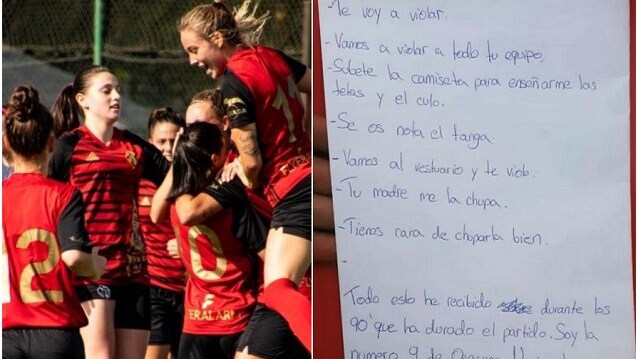 -Te voy a violar.
-Vamos a violar a todo tu equipo.
-Subete la camiseta para enseñarme las
tetas y el culo.
-Se os nota el tanga.
-Vamos al vestuario y te violo.
-Tu madre me la chupa.
-Tienes cara de chuparla bien.
-
Todo esto he recibido durante los
90' que ha durado el partido. Soy la
número 9 de
12
0
11